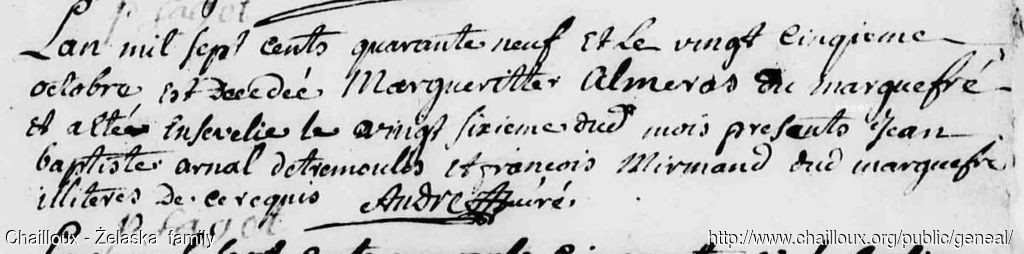 Lan mil sept cents quarante neuf et Le vingt cinqieme
octobre est decedée Margueritte Almeras du marquefré
et a été ensevelie le vingt sixieme dud mois presents Jean
baptiste arnal detremoulés et francois Mirmand dud marquefré
illiteres de ce requis André curé.
Chailloux - Żelaska family
http://www.chailloux.org/public/geneal/